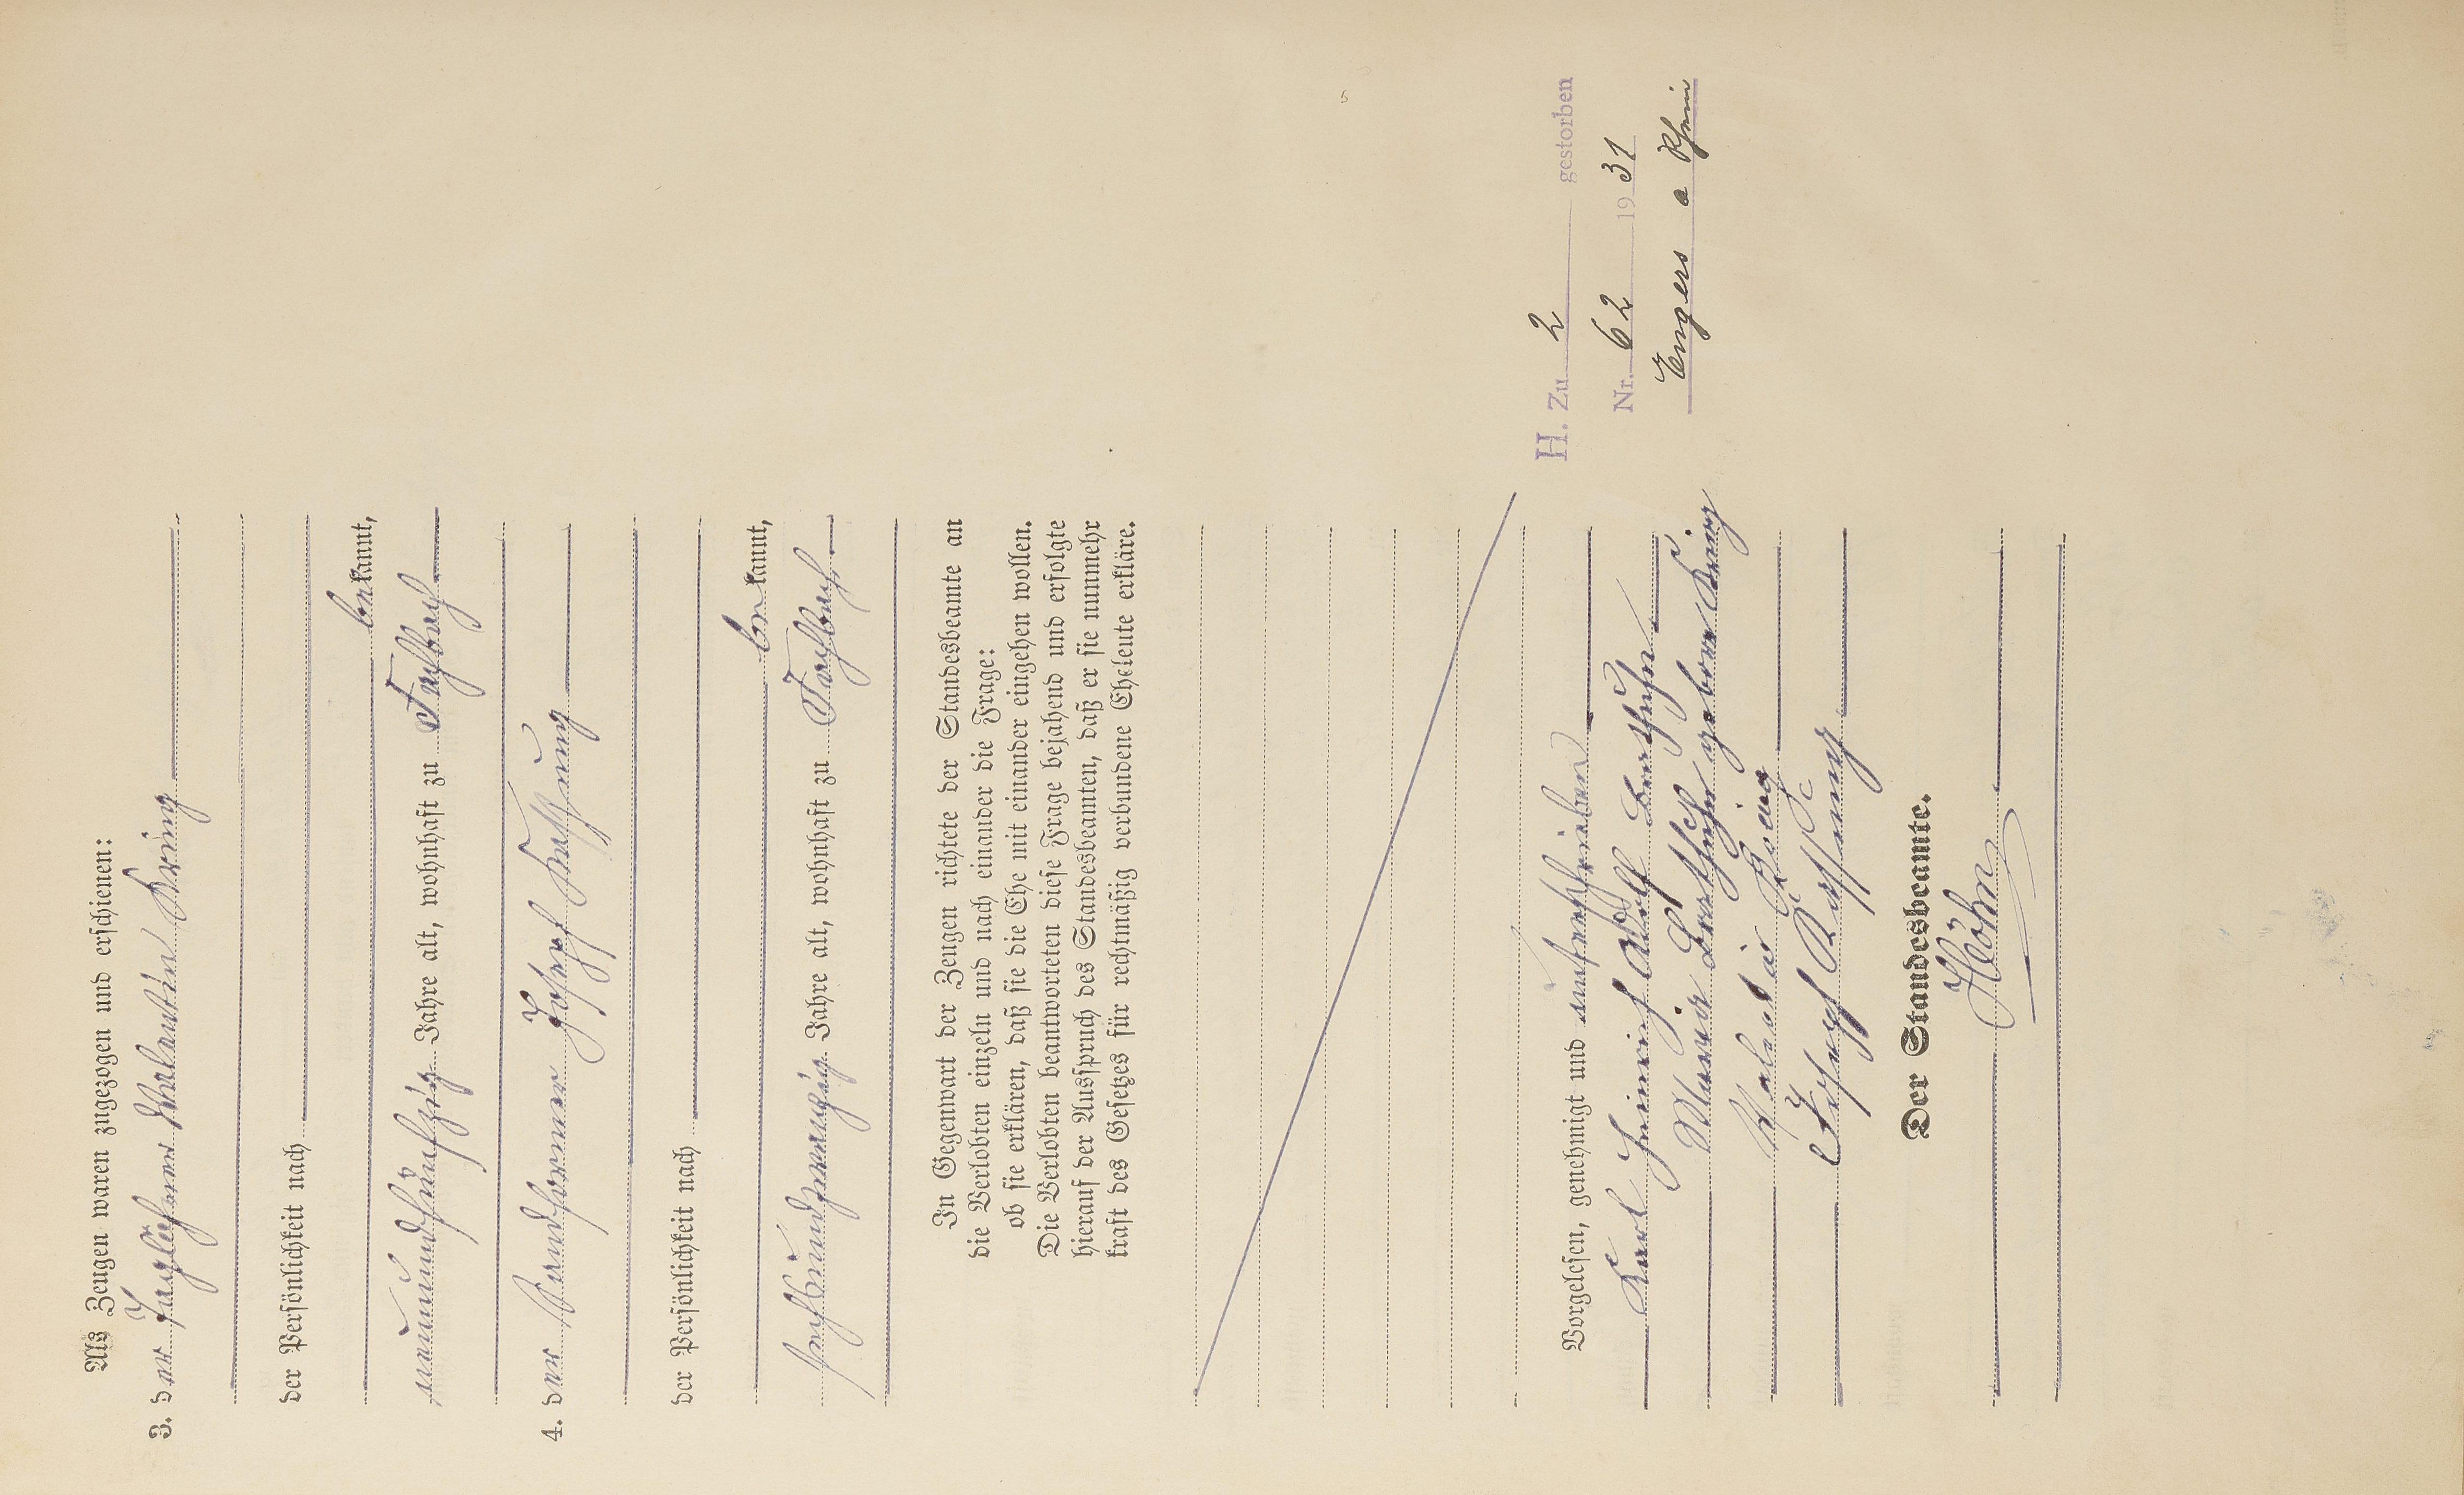 Als Zeugen waren zugezogen und erschienen:
3. der Taglöhner Valentin Kring
der Persönlichkeit nach
bekannt,
neunundfünfzig Jahre alt, wohnhaft zu Fachbach
4. der Sandformer Joseph
der Persönlichkeit nach
bekannt,
sechsundzwanzig Jahre alt, wohnhaft zu Fachbach
In Gegenwart der Zeugen richtete der Standesbeamte an
die Verlobten einzeln und nach einander die Frage:
ob sie erklären, daß sie die Ehe mit einander eingehen wollen.
Die Verlobten beantworteten diese Frage bejahend und erfolgte
hierauf der Ausspruch des Standesbeamten, daß er sie nunmehr
kraft des Gesetzes für rechtmäßig verbundene Eheleute erkläre.
Vorgelesen, genehmigt und unterschrieben
Karl Heinrich Adolf
Maria geborene Kring
Valentin Kring
Joseph
Der Standesbeamte.
Höhn
H. Zu 2 gestorben
Nr. 62 19 31
Engers a Rhein